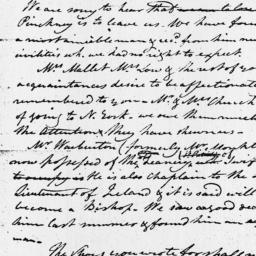 We are sorry to hear that
Pinckney is to leave us. We have fou
a most amiable man & recd. from him ma
ivilities wh. we had no right to expect.
Mrs. Mallet Mrs. Low & the rest of yo
acquaintances desire to be affectionate
remembered to you — Mr. & Mrs. Church
of going to N. York. we owe them much
the attention they have shewn us —
Mr. Warburton (formerly Mr.
now possessed of the
He is also Chaplain to the
Lieutenant of Ireland & it is said will
become a Bishop. We saw a good dea
him last summer & found him an a
man —
The Shoes you wrote for shall